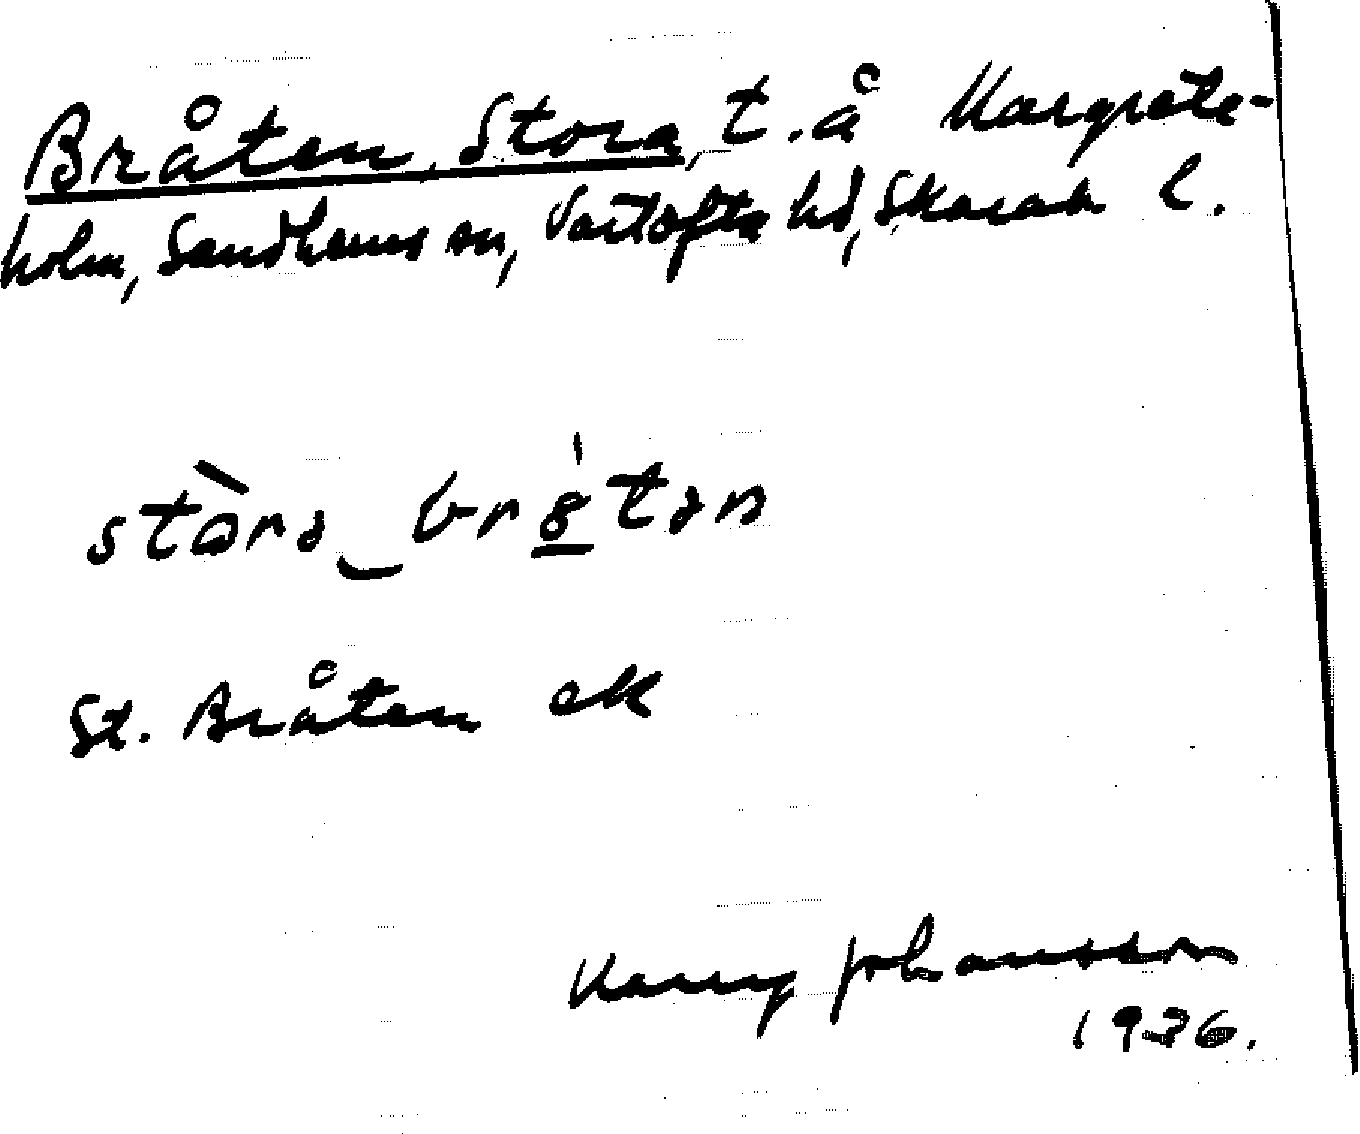 Bråten, Stora, t. å Margrete-
holm, Sandhems sn, Vartofta hd, Skarab. l.
stòra_brǻtən
St. Bråten ek
Harry Johansson
1936.